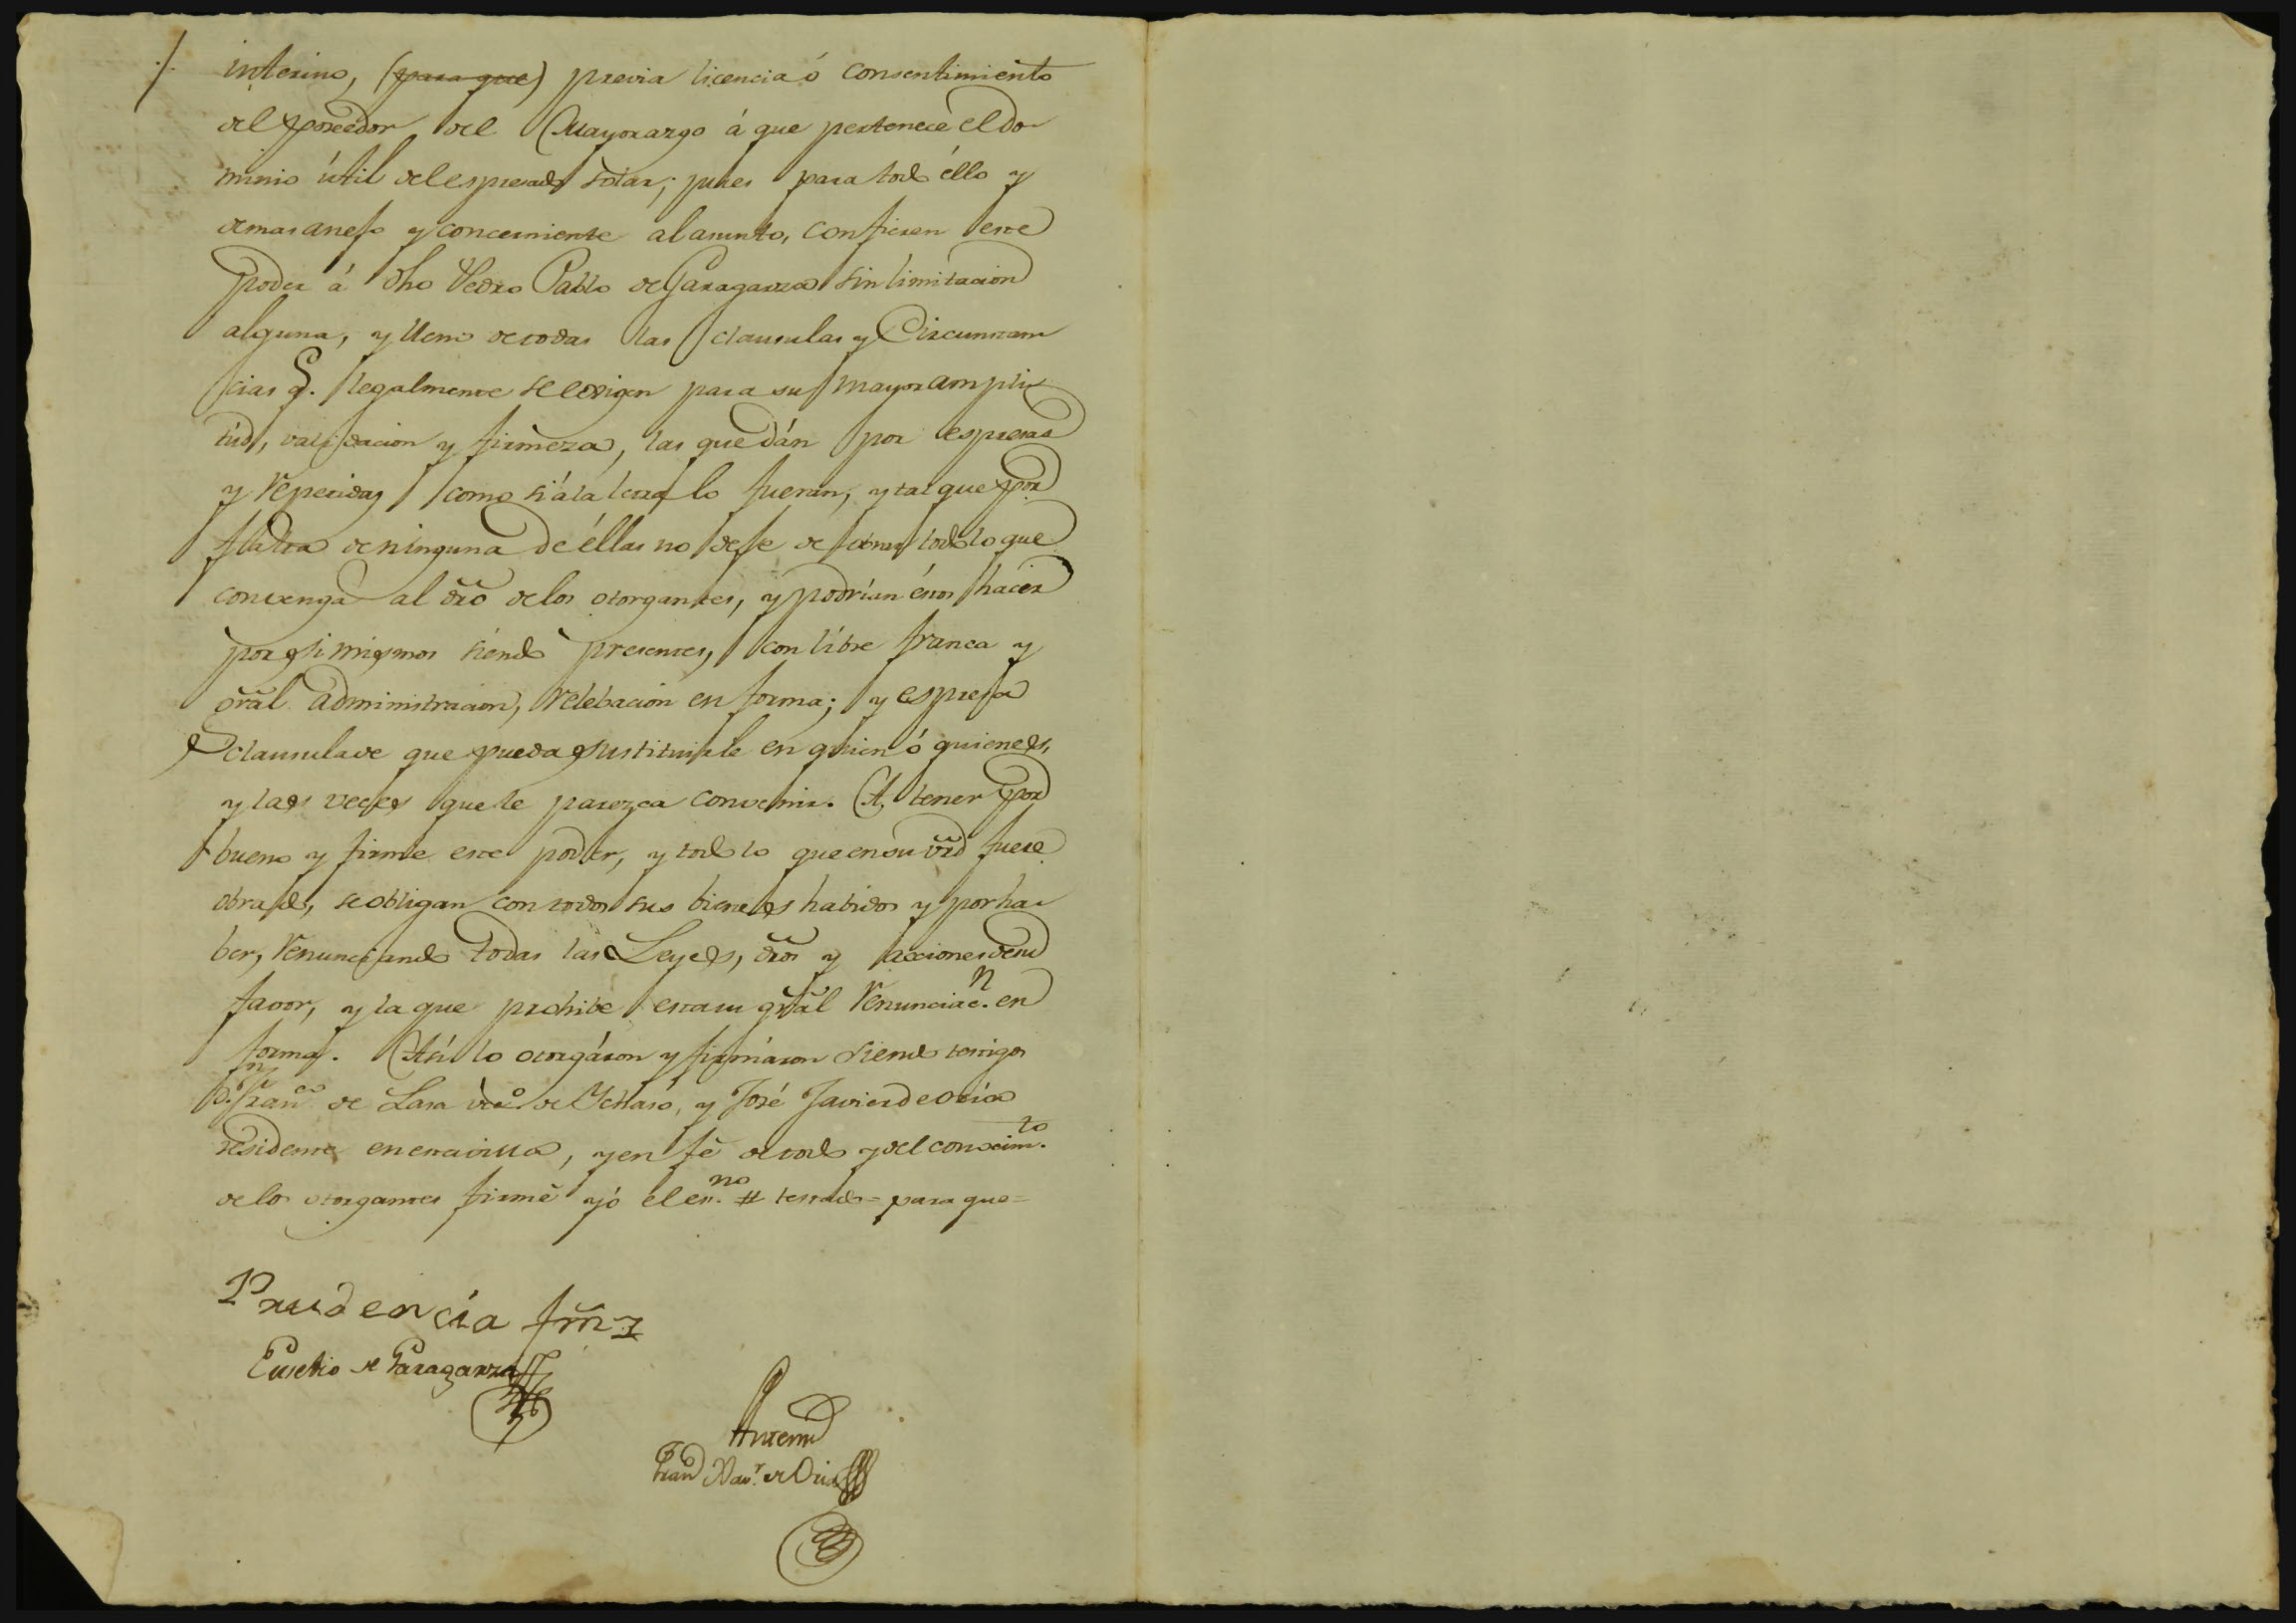 interino, (para que) previa licencia ó consentimiento
del poseedor del Mayorazgo á que pertenece el do
minio útil del espresado solar; pues para todo éllo y
demas anejo y concerniente al asunto, confieren este
poder á dho Pedro Pablo de Garagarza sin limitacion
alguna, y lleno de todas las clausulas y Circunstan
cias q. legalmente se exigen para su mayor ampli
tud, validacion y firmeza, las que dán por espresas
y repetidas como si á la letra lo fueran, y tal que por
falta de ninguna de éllas no deje de obrar todo lo que
convenga al dro de los otorgantes, y podrían éstos hacer
por si mismos siendo presentes, con libre franca y
gral administracion, relebacion en forma; y espresa
clausula de que pueda sustituirle en quien ó quienes,
y las veces que le parezca convenir. A tener por
bueno y firme este poder, y todo lo que en su vrd fuere
obrado, se obligan con todos sus bienes habidos y por ha
ber, renunciando todas las Leyes, dros y acciones de su
favor, y la que prohibe esta su gral renunciac.n en
forma. Así lo otorgáron y firmáron siendo testigos
D.n Fran.co de Lasa vec.o de Ychaso, y José Javier de Oria
residente en esta villa, y en fé de todo y del conocim.to
de los otorgantes firmé yó el es.no # testado = para que =
Prudencia frnz
Eusebio de Garagarza
Ante mi
Fran Xav.r de Oria